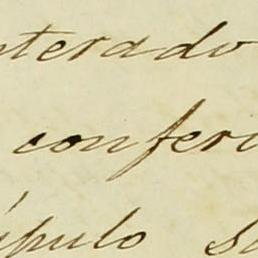 nterado
conferi
ápulo s